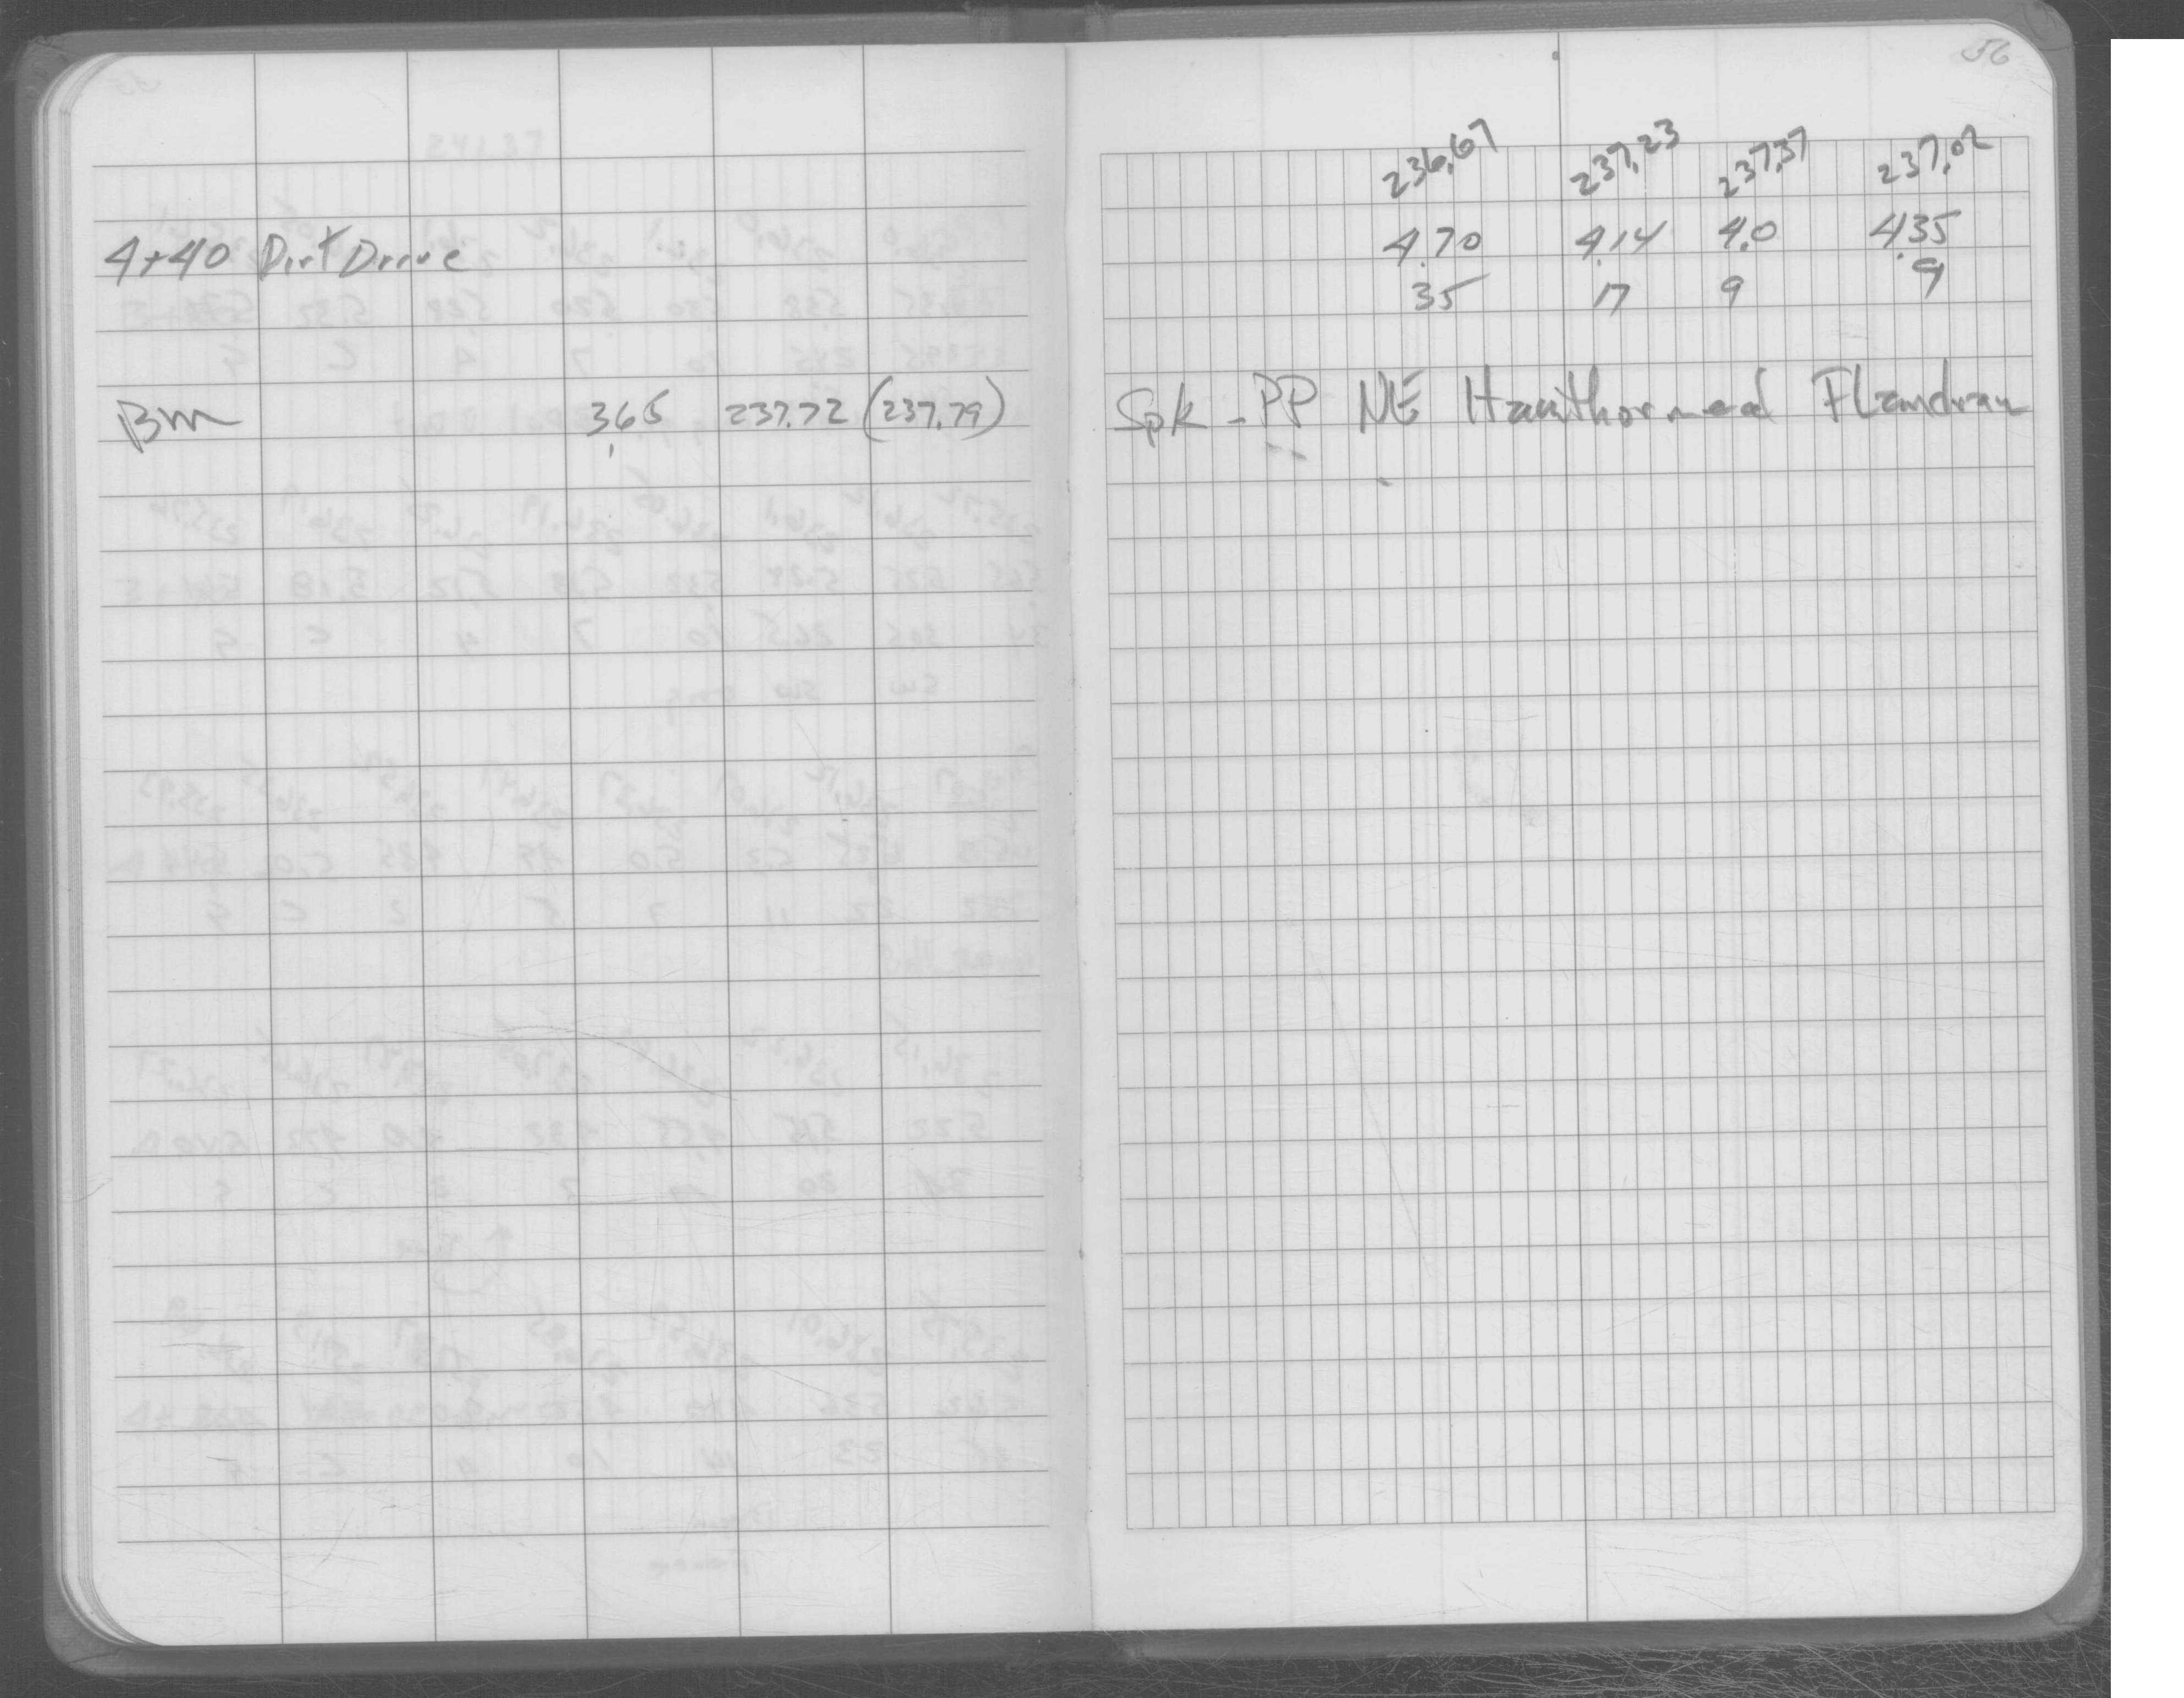 56
236.67 237.23 237.37 237.02
4+40 Dirt Drive 4.70 4.14 4.0 4.35
35 17 9 9
BM 3.65 237.72 (237.79) Spk - PP NE Hawthorne and Flandrau